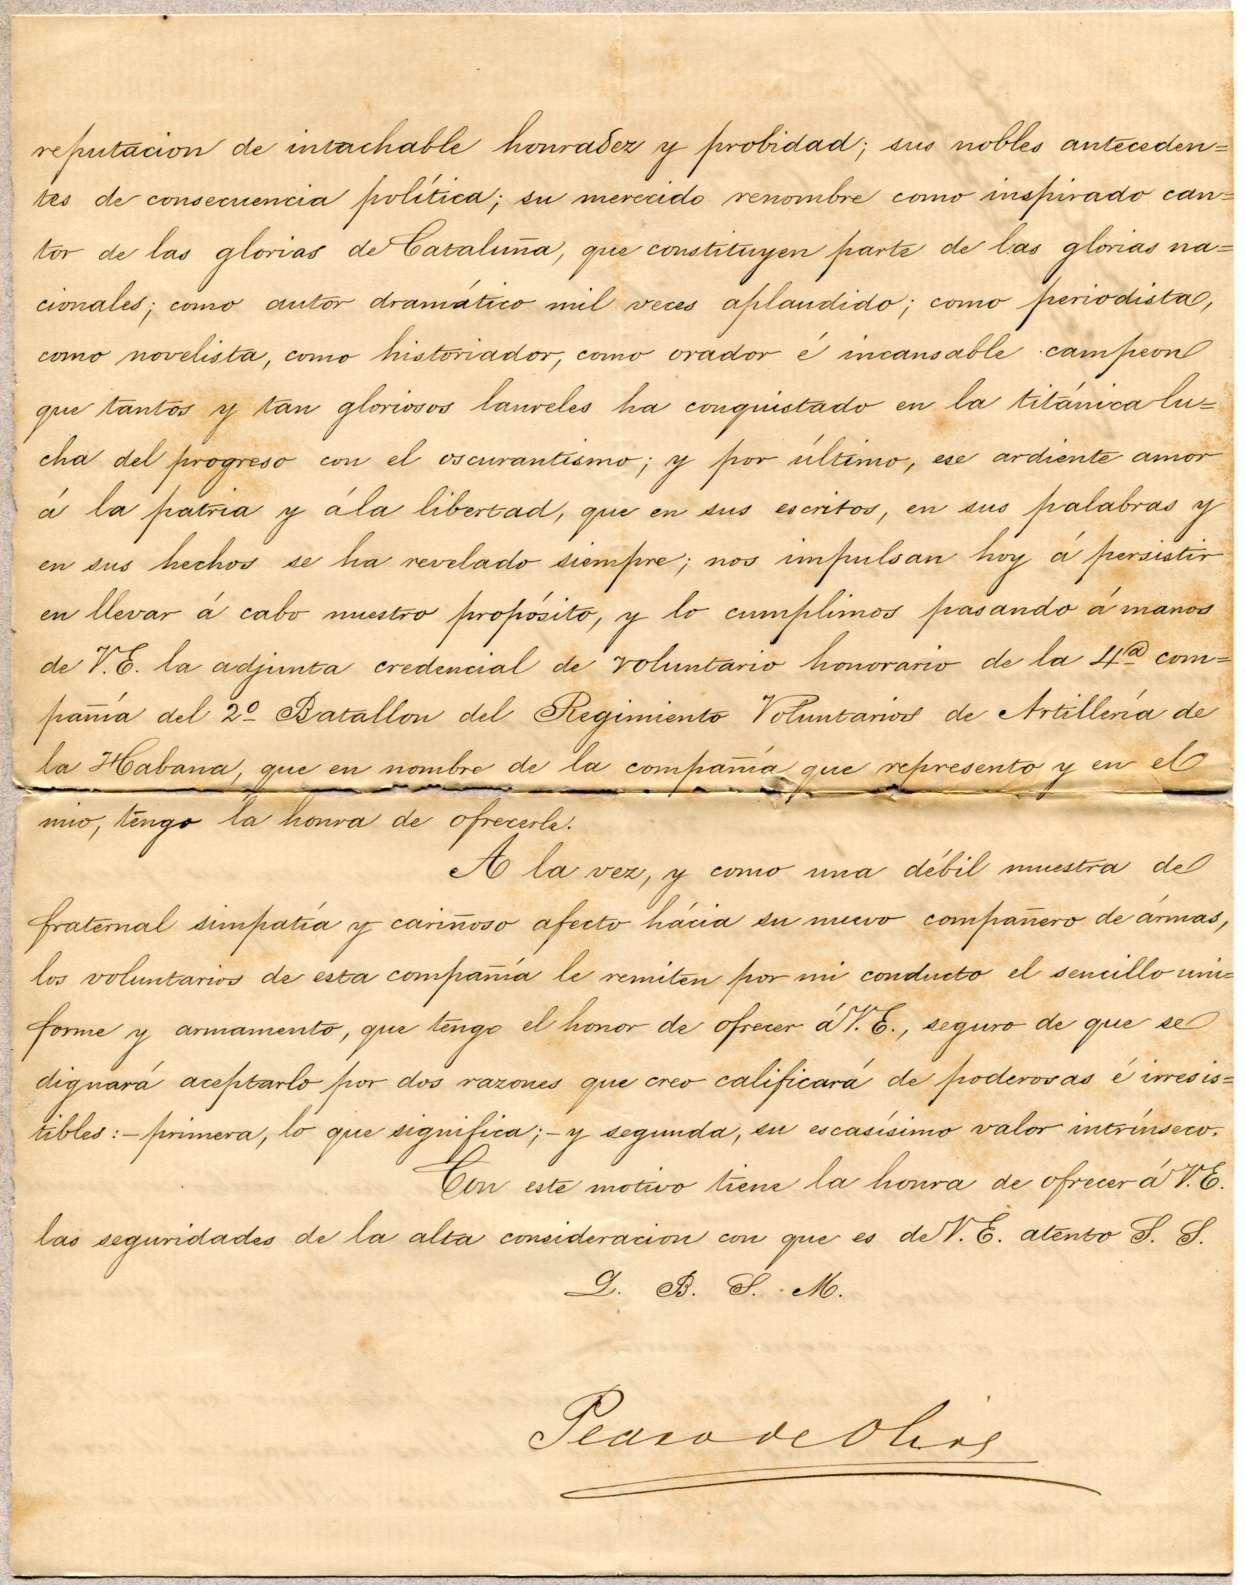 reputacion de intachable honradez y probidad; sus nobles anteceden=
tes de consecuencia política; su merecido renombre como inspirado can=
tor de las glorias de Cataluña, que constituyen parte de las glorias na=
cionales; como autor dramático mil veces aplaudido; como periodista,
como novelista, como historiador, como orador é incansable campeon
que tantos y tan gloriosos laureles ha conquistado en la titánica lu=
cha del progreso con el oscurantismo; y por último, ese ardiente amor
á la patria y á la libertad, que en sus escritos, en sus palabras y
en sus hechos se ha revelado siempre; nos impulsan hoy á persistir
en llevar á cabo nuestro propósito, y lo cumplimos pasando á manos
de V.E. la adjunta credencial de voluntario honorario de la 4ª com=
pañía del 2º Batallon del Regimiento Voluntarios de Artillería de
la Habana, que en nombre de la compañía que represento y en el
mio, tengo la honra de ofrecerle.
A la vez, y como una débil muestra de
fraternal simpatía y cariñoso afecto hácia su nuevo compañero de ármas,
los voluntarios de esta compañía le remiten por mi conducto el sencillo uni=
forme y armamento, que tengo el honor de ofrecer á V.E., seguro de que se
dignará aceptarlo por dos razones que creo calificará de poderosas é irresis=
tibles:—primera, lo que significa;—y segunda, su escasísimo valor intrínseco.
Con este motivo tiene la honra de ofrecer á V.E.
las seguridades de la alta consideracion con que es de V.E. atento S. S.
Q. B. S. M.
Pedro de